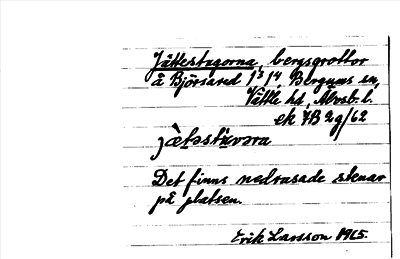 Jättestugorna, bergsgrottor
å Björsared 1 3 14 Bergums sn,
Vättle hd, Älvsb. l.
ek 7B 2g/62
jæ̀təstúvəra
Det finns nedrasade stenar
på platsen.
Erik Larsson 1965.